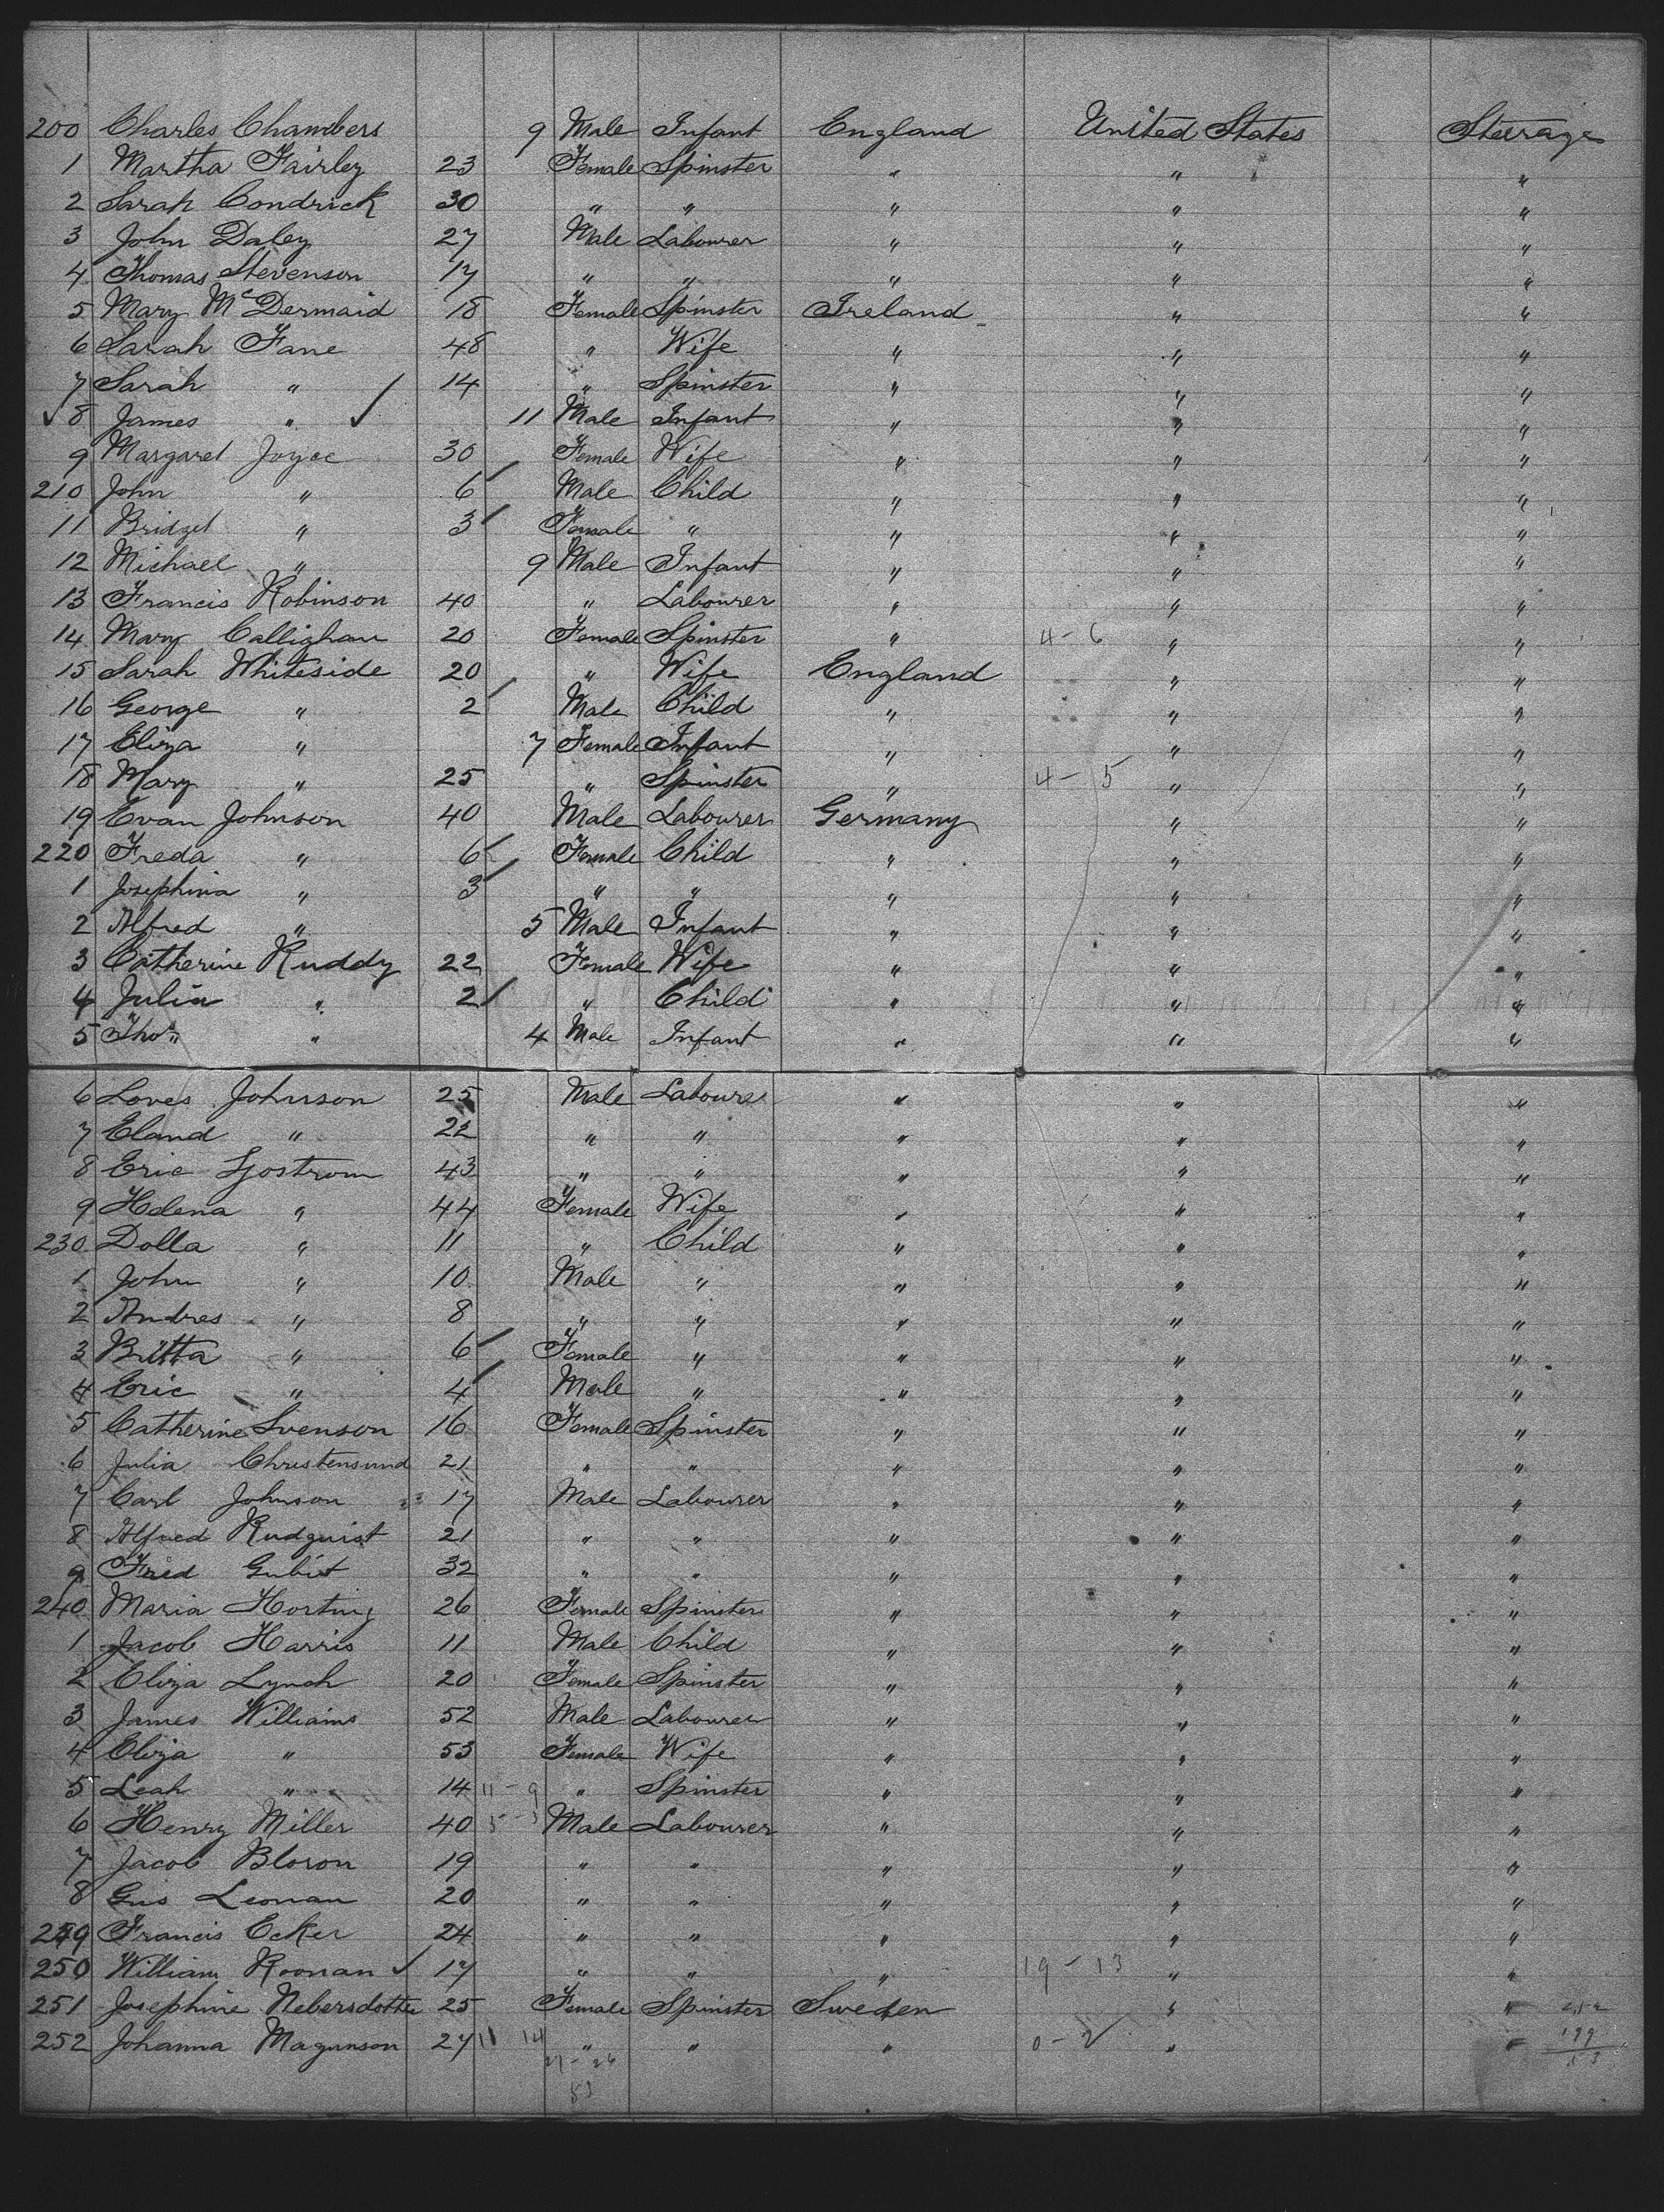 200 Charles Chambers 9 Male Infant England United States Steerage
1 Martha Fairley 23 Female Spinster " " "
2 Sarah Condrick 30 " " " " "
3 John Daley 27 Male Labourer " " "
4 Thomas Stevenson 17 " " " " "
5 Mary McDermaid 18 Female Spinster Ireland " "
6 Sarah Fane 48 " Wife " " "
7 Sarah " 14 " Spinster " " "
✓ 8 James " ✓ 11 Male Infant " " "
9 Margaret Joyce 30 Female Wife " " "
210 John " 6 Male Child " " "
11 Bridget " 3 Female " " " "
12 Michael " 9 Male Infant " " "
13 Francis Robinson 40 " Labourer " " "
14 Mary Callighan 20 Female Spinster " 4-6 " "
15 Sarah Whiteside 20 " Wife England " "
16 George " 2 Male Child " " "
17 Eliza " 7 Female Infant " " "
18 Mary " 25 " Spinster " 4-5 " "
19 Evan Johnson 40 Male Labourer Germany " "
220 Freda " 6 Female Child " " "
1 Josephina " 3 " " " " "
2 Alfred " 5 Male Infant " " "
3 Catherine Ruddy 22 Female Wife " " "
4 Julia " 2 " Child " " "
5 Thos " 4 Male Infant " " "
6 Loves Johnson 25 Male Labourer " " "
7 Eland " 22 " " " " "
8 Eric Sjostrom 43 " " " " "
9 Helena " 44 Female Wife " " "
230 Dolla " 11 " Child " " "
1 John " 10 Male " " " "
2 Andres " 8 " " " " "
3 Britta " 6 Female " " " "
4 Eric " 4 Male " " " "
5 Catherine Svenson 16 Female Spinster " " "
6 Julia Christensund 21 " " " " "
7 Carl Johnson 17 Male Labourer " " "
8 Alfred Rudquist 21 " " " " "
9 Fried Gubit 32 " " " " "
240 Maria Horting 26 Female Spinster " " "
1 Jacob Harris 11 Male Child " " "
2 Eliza Lynch 20 Female Spinster " " "
3 James Williams 52 Male Labourer " " "
4 Eliza " 53 Female Wife " " "
5 Leah " 14 11-9 " Spinster " " "
6 Henry Miller 40 5-3 Male Labourer " " "
7 Jacob Bloron 19 " " " " "
8 Gus Leonan 20 " " " " "
249 Francis Ecker 24 " " " " "
250 William Roonan ✓ 17 " " " 19-13 " "
251 Josephine Nebersdotter 25 Female Spinster Sweden " " 252
252 Johanna Magunson 27 11 14 " " " 0-2 " " 199
27-26 53
53